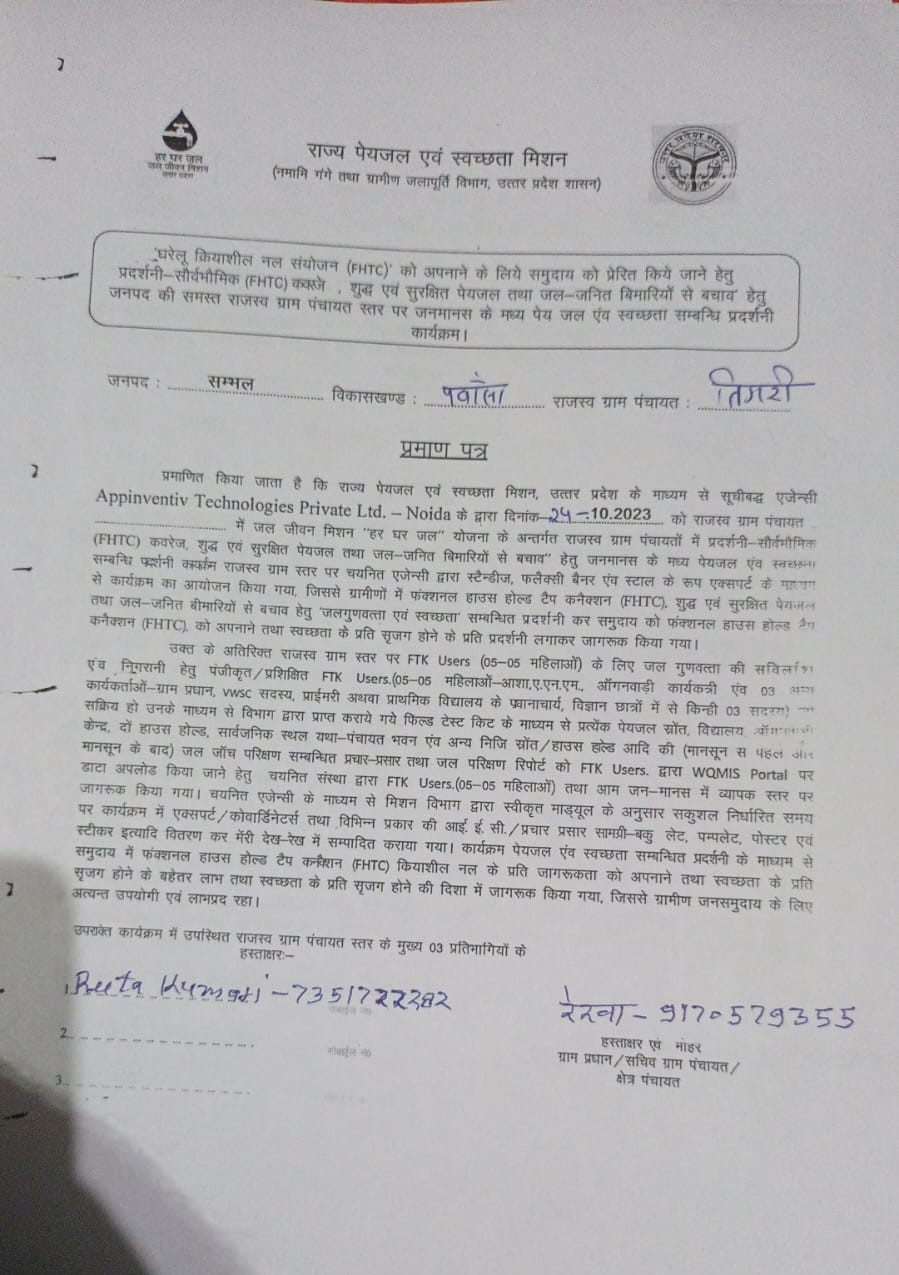 हर घर जल
जल जीवन मिशन
उत्तर प्रदेश
राज्य पेयजल एवं स्वच्छता मिशन
(नमामि गंगे तथा ग्रामीण जलापूर्ति विभाग, उत्तर प्रदेश शासन)
'घरेलू क्रियाशील नल संयोजन (FHTC)' को अपनाने के लिये समुदाय को प्रेरित किये जाने हेतु
प्रदर्शनी–सौर्वभौमिक (FHTC) कवरेज , शुद्ध एवं सुरक्षित पेयजल तथा जल–जनित बिमारियों से बचाव' हेतु
जनपद की समस्त राजस्व ग्राम पंचायत स्तर पर जनमानस के मध्य पेय जल एंव स्वच्छता सम्बन्धि प्रदर्शनी
कार्यक्रम।
जनपद : सम्भल विकासखण्ड : पवांसा राजस्व ग्राम पंचायत : तिमरी
प्रमाण पत्र
प्रमाणित किया जाता है कि राज्य पेयजल एवं स्वच्छता मिशन, उत्तर प्रदेश के माध्यम से सूचीबद्ध एजेन्सी
Appinventiv Technologies Private Ltd. – Noida के द्वारा दिनांक–24–10.2023 को राजस्व ग्राम पंचायत
में जल जीवन मिशन "हर घर जल" योजना के अन्तर्गत राजस्व ग्राम पंचायतों में प्रदर्शनी–सौर्वभौमिक
(FHTC) कवरेज, शुद्ध एवं सुरक्षित पेयजल तथा जल–जनित बिमारियों से बचाव" हेतु जनमानस के मध्य पेयजल एंव स्वच्छता
सम्बन्धि राजस्व ग्राम स्तर पर चयनित एजेन्सी द्वारा स्टैन्डीज, फलैक्सी बैनर एंव स्टाल के रूप एक्सपर्ट के माध्यम
से कार्यक्रम का आयोजन किया गया, जिससे ग्रामीणों में फंक्शनल हाउस होल्ड टैप कनैक्शन (FHTC), शुद्ध एवं सुरक्षित पेयजल
तथा जल–जनित बीमारियों से बचाव हेतु 'जलगुणवत्ता एवं स्वच्छता' सम्बन्धित प्रदर्शनी कर समुदाय को फंक्शनल हाउस होल्ड टैप
कनैक्शन (FHTC), को अपनाने तथा स्वच्छता के प्रति सृजग होने के प्रति प्रदर्शनी लगाकर जागरूक किया गया।
उक्त के अतिरिक्त राजस्व ग्राम स्तर पर FTK Users (05–05 महिलाओं) के लिए जल गुणवत्ता की
एंव निगरानी हेतु पंजीकृत/प्रशिक्षित FTK Users.(05–05 महिलाओं–आशा,ए.एन.एम., ऑंगनवाड़ी कार्यकत्री एंव 03 अन्य
कार्यकर्ताओं–ग्राम प्रधान, vwsc सदस्य, प्राईमरी अथवा प्राथमिक विद्यालय के प्रधानाचार्य, विज्ञान छात्रों में से किन्ही 03 सदस्य)
सक्रिय हो उनके माध्यम से विभाग द्वारा प्राप्त कराये गये फिल्ड टेस्ट किट के माध्यम से प्रत्येक पेयजल स्रोंत, विद्यालय,
केन्द्र, दों हाउस होल्ड, सार्वजनिक स्थल यथा–पंचायत भवन एंव अन्य निजि स्रोंत/हाउस होल्ड आदि की (मानसून से पहले और
मानसून के बाद) जल जॉंच परिक्षण सम्बन्धित प्रचार–प्रसार तथा जल परिक्षण रिपोर्ट को FTK Users. द्वारा WQMIS Portal पर
डाटा अपलोड किया जाने हेतु चयनित संस्था द्वारा FTK Users.(05–05 महिलाओं) तथा आम जन–मानस में व्यापक स्तर पर
जागरूक किया गया। चयनित एजेन्सी के माध्यम से मिशन विभाग द्वारा स्वीकृत माड्यूल के अनुसार सकुशल निर्धारित समय
पर कार्यक्रम में एक्सपर्ट/कोवार्डिनेटर्स तथा विभिन्न प्रकार की आई. ई. सी./प्रचार प्रसार सामग्री–बकु लेट, पम्पलेट, पोस्टर एवं
स्टीकर इत्यादि वितरण कर मेंरी देख–रेख में सम्पादित कराया गया। कार्यक्रम पेयजल एंव स्वच्छता सम्बन्धित प्रदर्शनी के माध्यम से
समुदाय में फंक्शनल हाउस होल्ड टैप कनैक्शन (FHTC) कियाशील नल के प्रति जागरूकता को अपनाने तथा स्वच्छता के प्रति
सृजग होने के बहेतर लाभ तथा स्वच्छता के प्रति सृजग होने की दिशा में जागरूक किया गया, जिससे ग्रामीण जनसमुदाय के लिए
अत्यन्त उपयोगी एवं लाभप्रद रहा।
उपरोक्त कार्यक्रम में उपस्थित राजस्व ग्राम पंचायत स्तर के मुख्य 03 प्रतिभागियों के
हस्ताक्षरः–
1. Reeta Kumari – 7351722282
रेखा – 9170579355
हस्ताक्षर एवं मोहर
2. मोबाईल नं0
ग्राम प्रधान/सचिव ग्राम पंचायत/
क्षेत्र पंचायत
3.